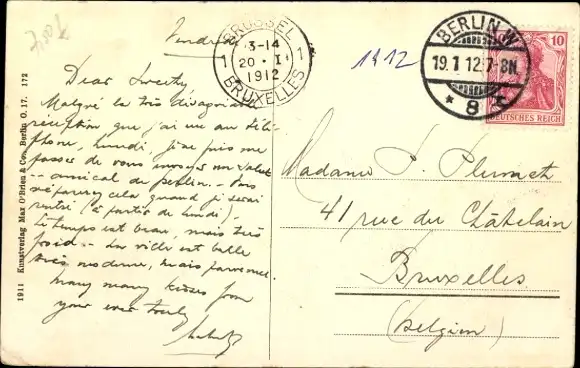 Vendredi
BRUSSEL
13-14
1 20 · I 1
1912
BRUXELLES
1912
BERLIN.W.
19.1 12.7-8N.
* 8
10
DEUTSCHES REICH
Dear Sweety,
Malgré la très désagréable
réception que j'ai eue au télé-
phone, lundi, je ne puis me
passer de vous envoyer un salut
amical de Berlin. -
cela quand je serai
rentré (à partir de lundi).
Le temps est beau, mais très
froid -- La ville est belle
très moderne, mais
many many kisses from
your ever truly
Madame S. Plumet
41 rue du Châtelain
Bruxelles
(Belgien)
1911 Kunstverlag Max O'Brien & Co., Berlin O. 17. 172